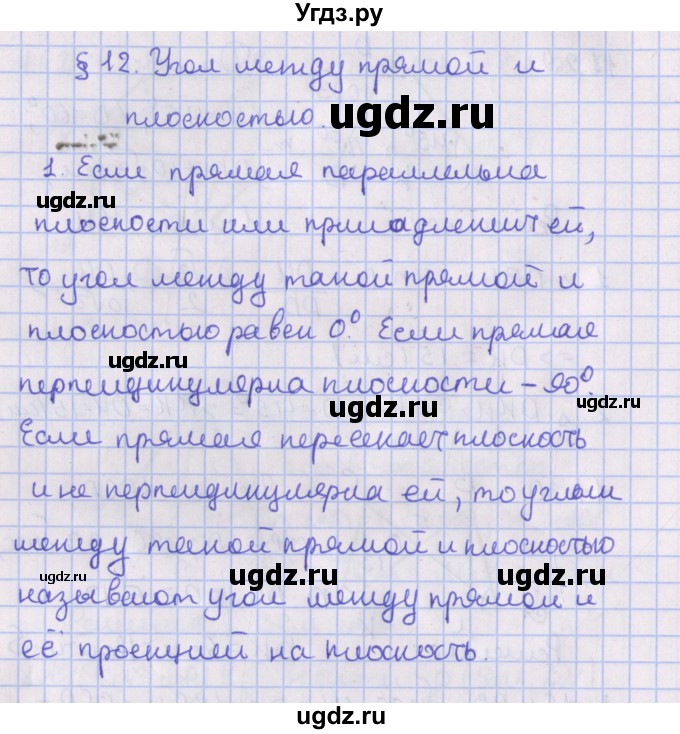 Угдз.ру
§ 12. Угол между прямой и
плоскостью.
ugdz.ru
1. Если прямая параллельна
ugdz.ru
плоскости или принадлежит ей,
ugdz.ru
то угол между такой прямой и
плоскостью равен 0°. Если прямая
ugdz.ru
перпендикулярна плоскости – 90°.
ugdz.ru ugdz.ru
Если прямая пересекает плоскость
и не перпендикулярна ей, то углом
ugdz.ru
между такой прямой и плоскостью
ugdz.ru ugdz.ru ugdz.ru
называют угол между прямой и
её проекцией на плоскость.
ugdz.ru
ugdz.ru